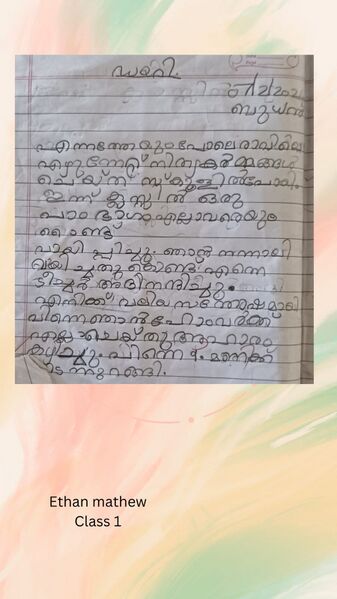 ഡയറി.
ബുധൻ
എന്നത്തേയുംപോലെ രാവിലെ
എഴുന്നേറ്റ് നിത്യകർമ്മങ്ങൾ
ചെയ്ത് സ്കൂളിൽപോയി.
ഇന്ന് ക്ലാസ്സിൽ ഒരു
പാഠഭാഗം എല്ലാവരെയും
കൊണ്ട്
വായിപ്പിച്ചു. ഞാൻ നന്നായി
വായിച്ചതുകൊണ്ട് എന്നെ
ടീച്ചർ അഭിനന്ദിച്ചു.
എനിക്ക് വലിയ സന്തോഷമായി
പിന്നെഞാൻഹോംവർക്ക്
എല്ലാംചെയ്തുആഹാരം
കഴിച്ചു. പിന്നെ 9. മണിക്ക്
കിടന്നുറങ്ങി.
Ethan mathew
Class 1